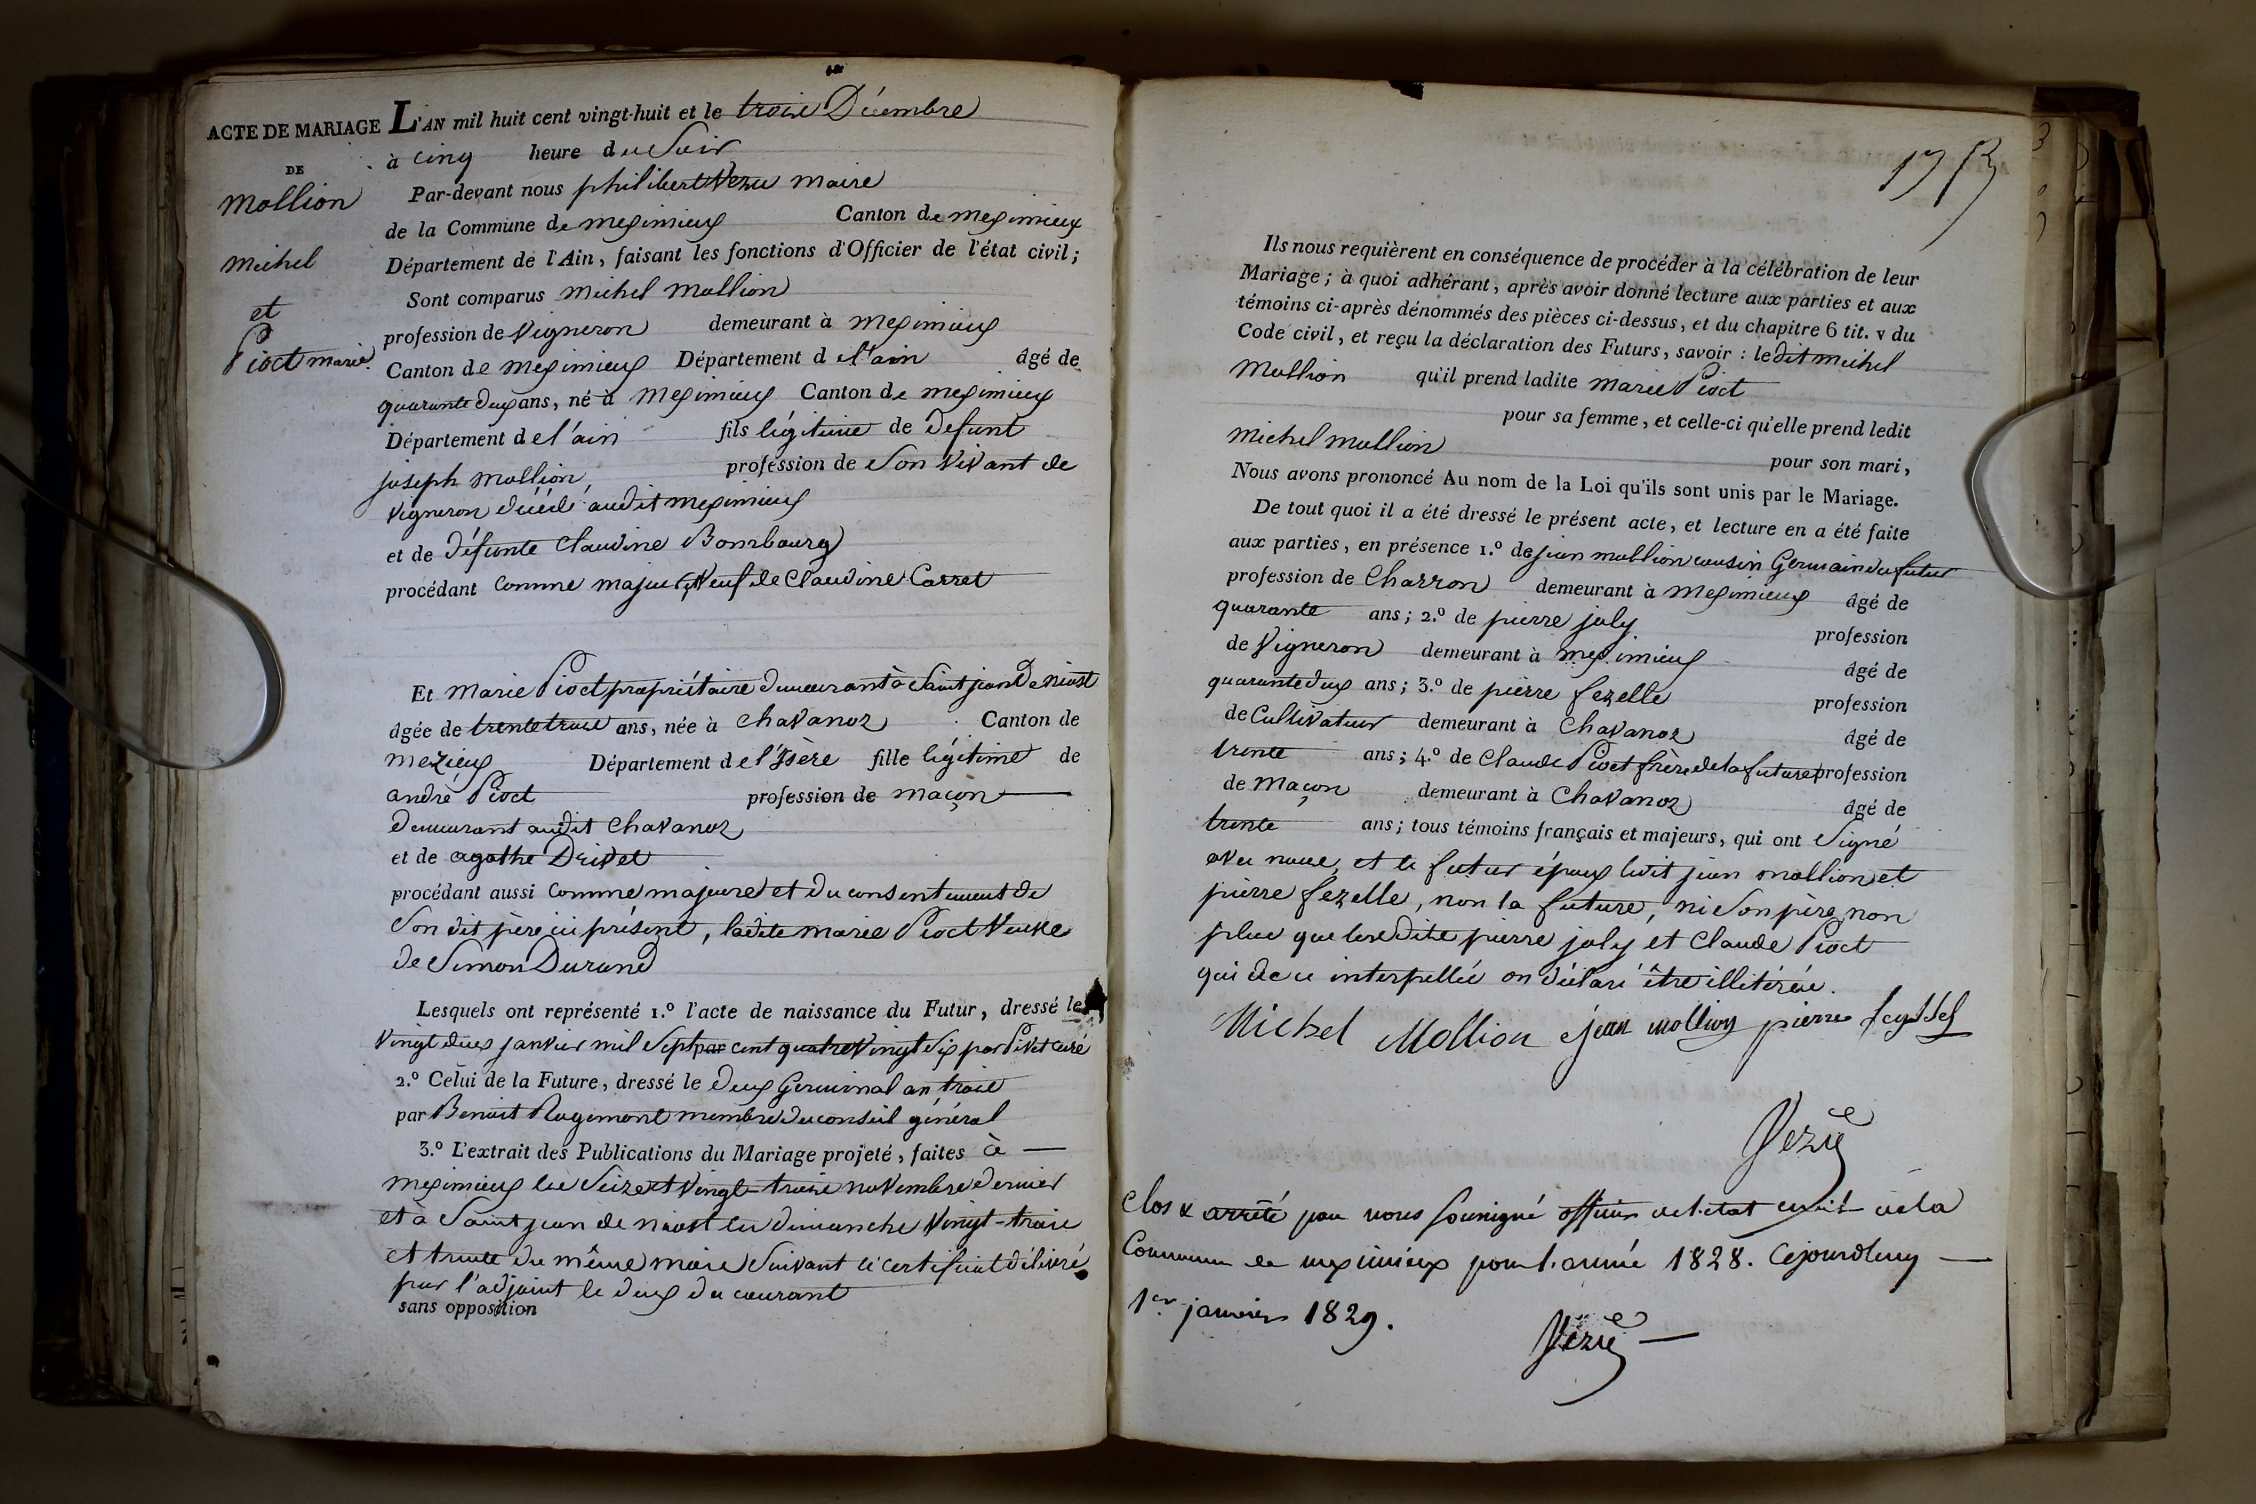 ACTE DE MARIAGE
DE
Mollion
Michel
et
Pioct marie.
L'AN mil huit cent vingt-huit et le trois Décembre
à cinq heure du Soir
Par-devant nous philibert Vezu maire
de la Commune de meximieux Canton de meximieux
Département de l'Ain, faisant les fonctions d'Officier de l'état civil;
Sont comparus Michel Mollion
profession de Vigneron demeurant à meximieux
Canton de meximieux Département de l'ain âgé de
quarante deux ans, né à Meximieux Canton de meximieux
Département de l'ain fils légitime de defunt
joseph mollion, profession de Son Vivant de
Vigneron décédé audit meximieux
et de défunte Claudine Bombourg
procédant comme majeur, Veuf de Claudine Carret
Et marie Pioct propriétaire demeurant à Saint jean De niost
âgée de trente trois ans, née à Chavanoz Canton de
mezieux Département de l'Isère fille légitime de
andré Pioct profession de maçon
demeurant audit Chavanoz
et de agathe Drivet
procédant aussi comme majeure et du consentement de
Son dit père ici présent, ladite marie Pioct Veuve
de Simon Durand
Lesquels ont représenté 1.º l'acte de naissance du Futur, dressé le
Vingt deux janvier mil Sept par cent quatre Vingt Six par Pivet curé
2.º Celui de la Future, dressé le deux Germinal an trois
par Benoit Rugemont membre du conseil général
3.º L'extrait des Publications du Mariage projeté, faites à
meximieux les Seize et Vingt-trois novembre dernier
et à Saint jean de niost les dimanche Vingt-trois
et trente du même mois Suivant le certificat délivré
par l'adjoint le deux du courant
sans opposition
173
Ils nous requièrent en conséquence de procéder à la célébration de leur
Mariage; à quoi adhérant, après avoir donné lecture aux parties et aux
témoins ci-après dénommés des pièces ci-dessus, et du chapitre 6 tit. v du
Code civil, et reçu la déclaration des Futurs, savoir : le dit michel
Mollion qu'il prend ladite marie Pioct
pour sa femme, et celle-ci qu'elle prend ledit
michel mollion pour son mari,
Nous avons prononcé Au nom de la Loi qu'ils sont unis par le Mariage.
De tout quoi il a été dressé le présent acte, et lecture en a été faite
aux parties, en présence 1.º de jean mollion cousin Germain du futur
profession de Charron demeurant à meximieux âgé de
quarante ans; 2.º de pierre joly profession
de Vigneron demeurant à meximieux âgé de
quarante deux ans; 3.º de pierre fezelle profession
de Cultivateur demeurant à Chavanoz âgé de
trente ans; 4.º de Claude Pioct frère de la future profession
de Maçon demeurant à Chavanoz âgé de
trente ans; tous témoins français et majeurs, qui ont Signé
avec nous, et le futur époux ledit jean mollion et
pierre fezelle, non la future, ni Son père non
plus que lesdits pierre joly et Claude Pioct
qui de ce interpellés on déclaré être illitérés.
Michel Mollion jean mollion pierre feyssel
Vezu
Clos & arrêté par nous soussigné officier de l'etat civil de la
Commune de meximieux pour l'année 1828. Cejourdhuy
1er janvier 1829.
Vezu